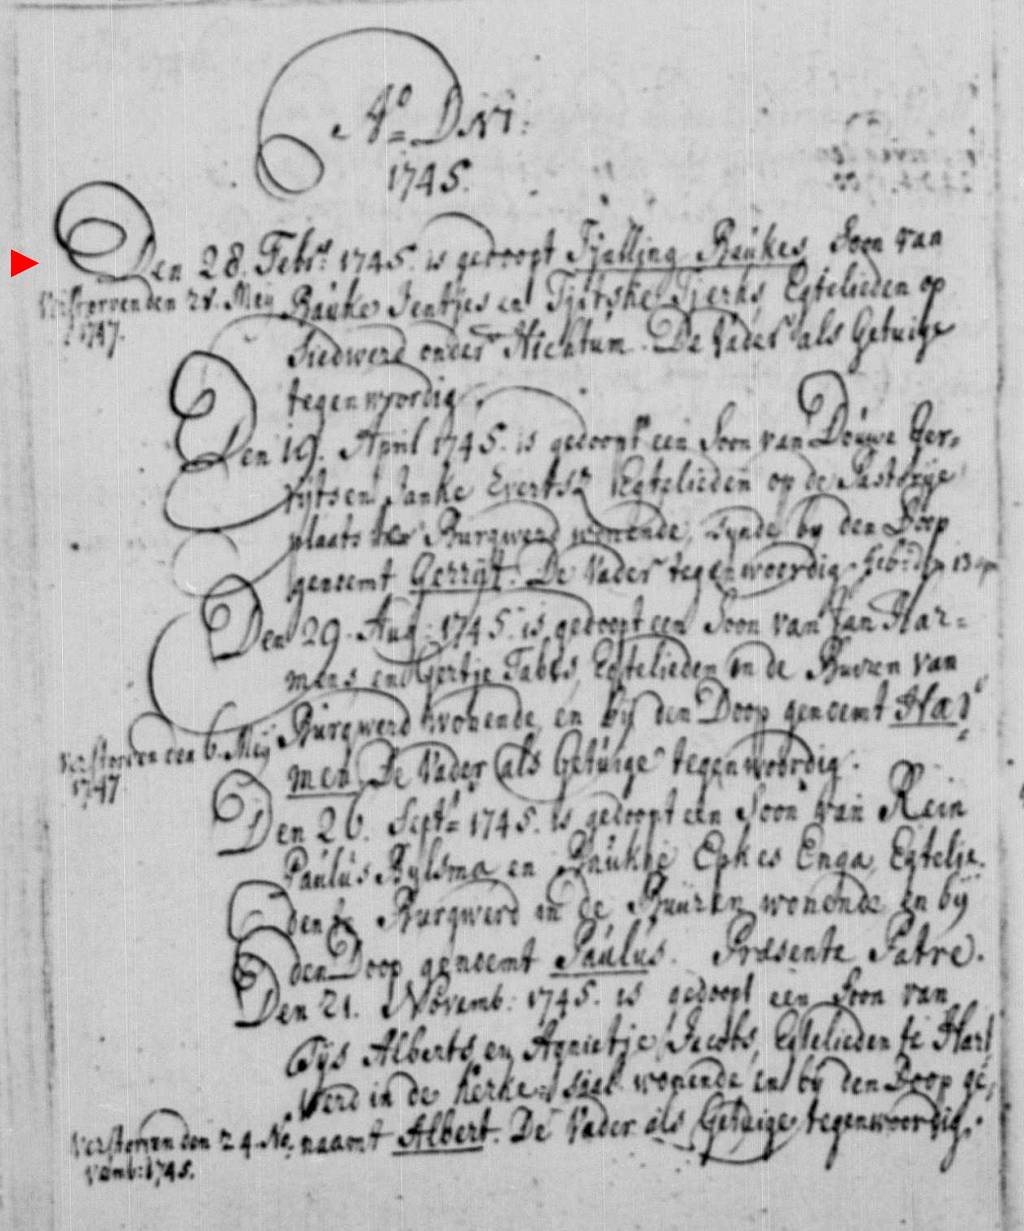 Aº = DNI:
1745.
Den 28. Febr: 1745. is gedoopt Tjalling Baukes Soon van
Verstorven den 28. Meij
1747.
Bauke Jentjes en Tjitske Tjerks, Egtelieden op
Siedwerd onder Hichtum. De Vader als Getuige
tegenwoordig.
Den 19. April 1745. is gedoopt een Soon van Douwe Ger-
rijts en Janke Everts Egtelieden op de Pastorije
plaats te Burgwerd wonende, zynde by den Doop
genoemt Gerrijt. De Vader tegenwoordig. geb: den 13 apr
Den 29. Aug: 1745. is gedoopt een Soon van Jan Har=
mens en Gertje Tabes, Egtelieden in de Buuren van
Burgwerd wonende, en bij den Doop genoemt Har=
verstorven den 6. Meij
1747
men. De Vader als Getuige tegenwoordig.
Den 26. Septr= 1745. is gedoopt een Soon van Rein
Paulus Rylsma en Baukje Epkes Enga, Egtelie-
den te Burgwerd in de Buuren wonende en bij
den Doop genoemt Paulus. Præsente Patre.
Den 21. Novemb: 1745. is gedoopt een Soon van
Tijs Alberts en Agnietje Jacobs, Egtelieden te Hart
werd in de wonende en bij den Doop ge-
naamt Albert. De Vader als Getuige tegenwoordig.
Verstorven den 24. No-
vemb: 1745.